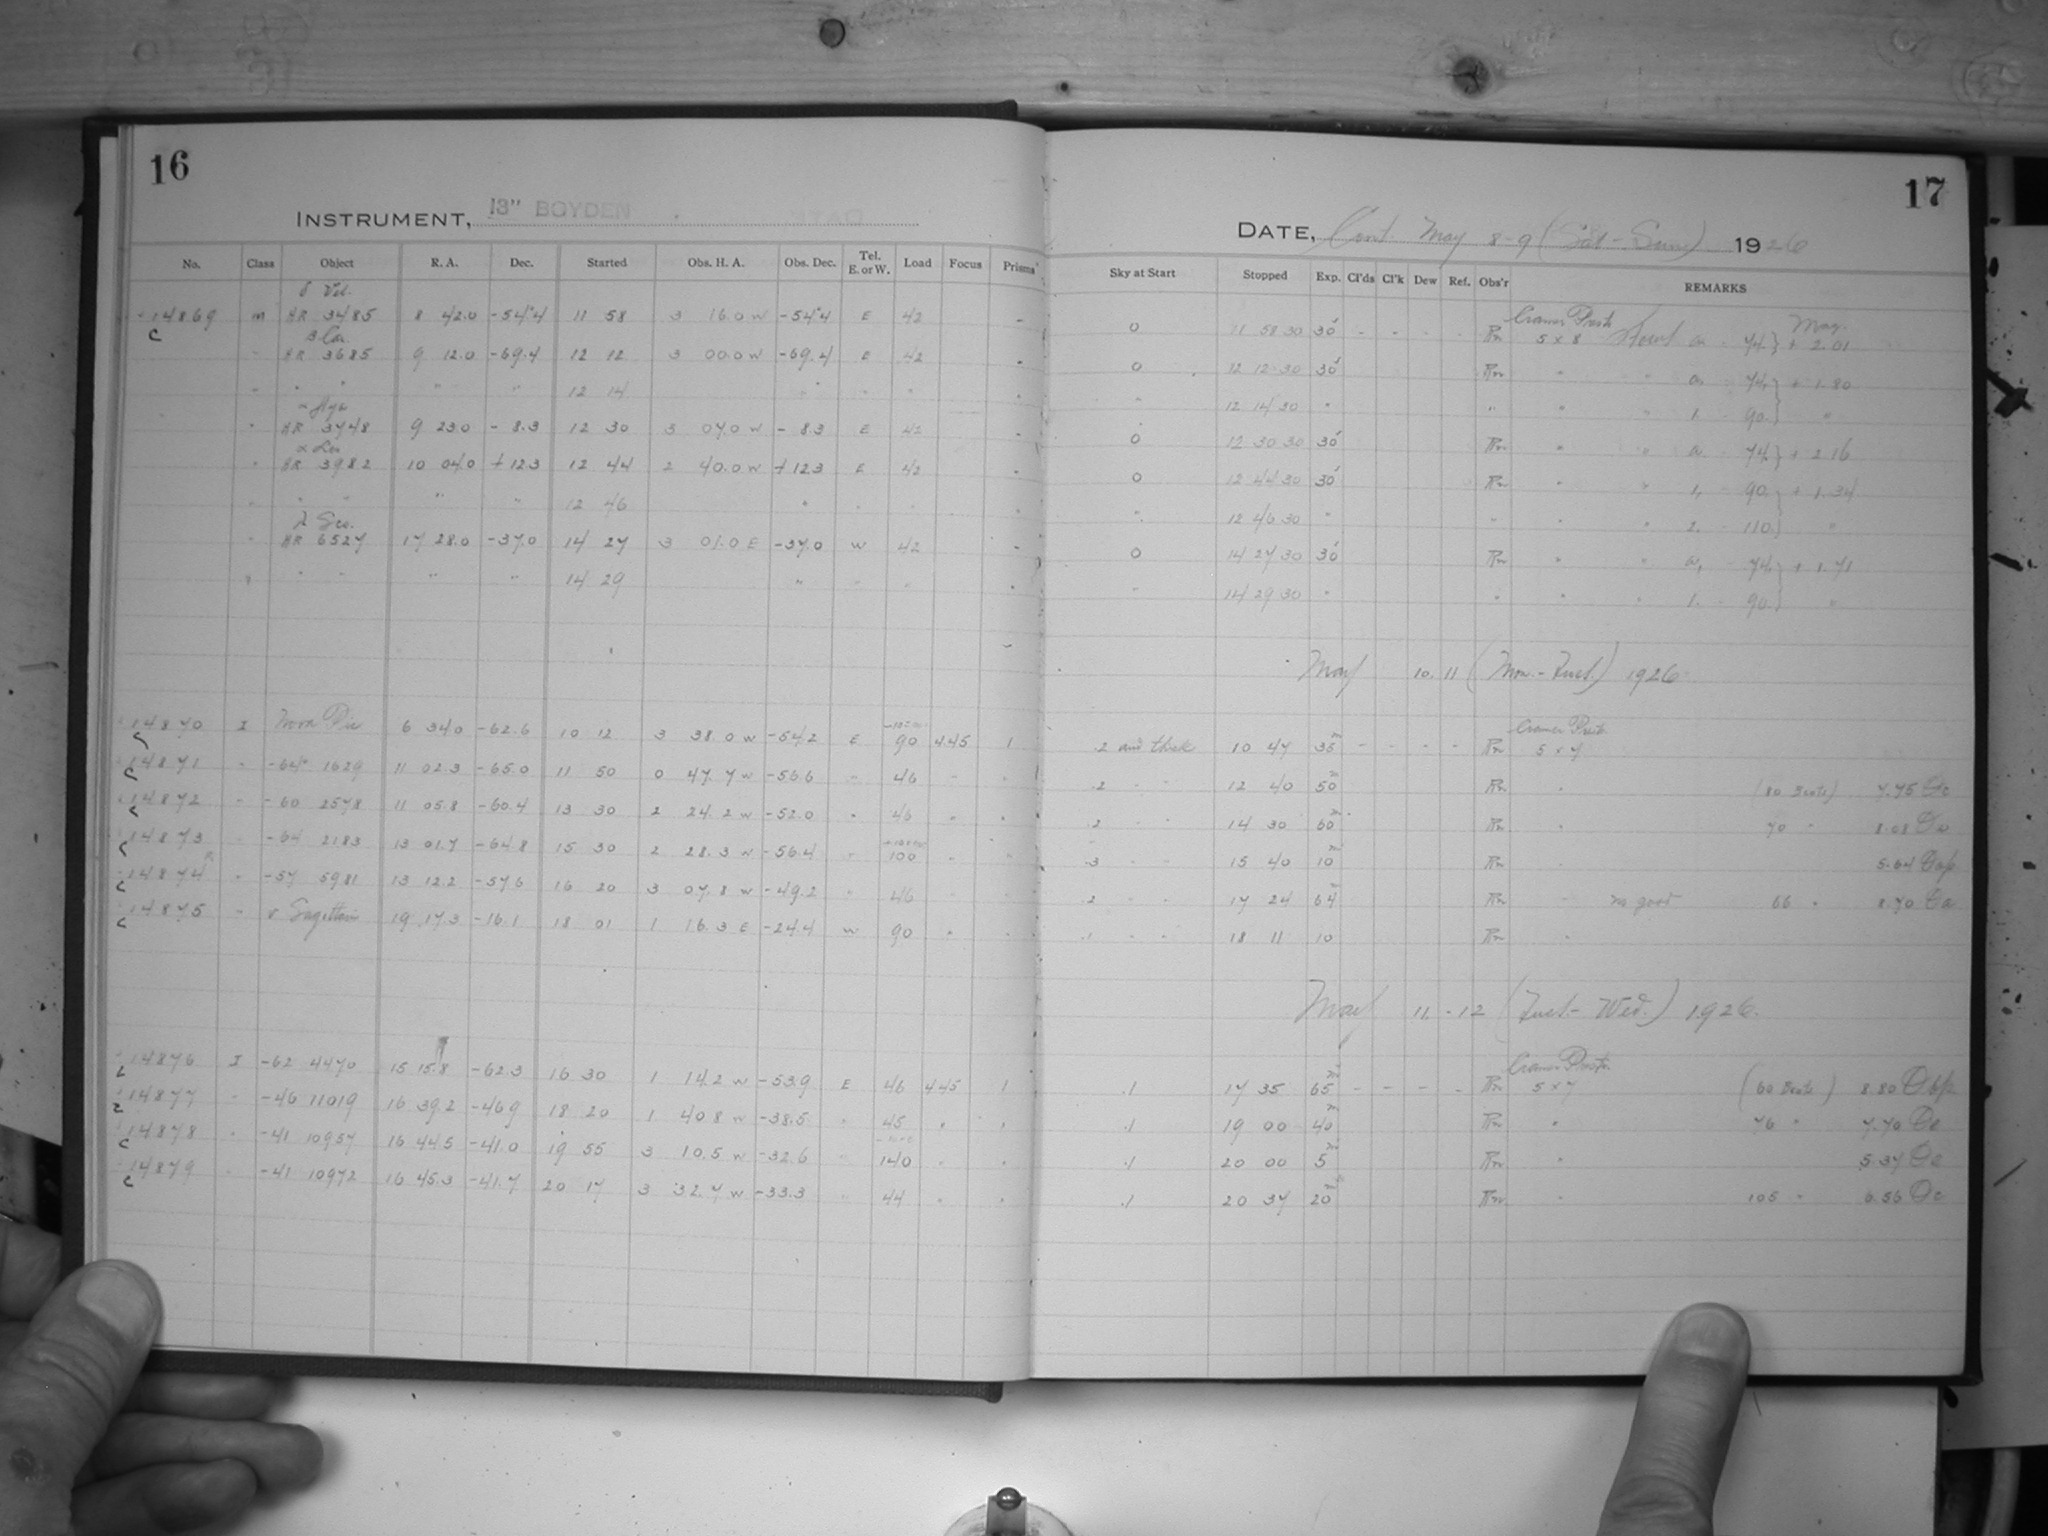 16
INSTRUMENT, 13" BOYDEN
No. Class Object R. A. Dec. Started Obs. H. A. Obs. Dec. Tel. E. or W. Load Focus Prisms
δ Vel.
14869 m HR 3485 8 42.0 -54.4 11 58 3 16.0 W -54.4 E 42 -
C
β Car.
" HR 3685 9 12.0 -69.4 12 12 3 00.0 W -69.4 E 42 -
" " " " " 12 14 " " " -
α Hya
" HR 3748 9 23.0 - 8.3 12 30 3 07.0 W - 8.3 E 42 -
α Leo
" HR 3982 10 04.0 +12.3 12 44 2 40.0 W +12.3 E 42 -
" " " " " 12 46 " " "
λ Sco.
" HR 6527 17 28.0 -37.0 14 27 3 01.0 E -37.0 W 42 -
" " " " " 14 29 " " "
14870 I Nova Pic 6 34.0 -62.6 10 12 3 38.0 W -54.2 E 90 445 1
C
14871 " -64° 1629 11 02.3 -65.0 11 50 0 47.7 W -56.6 " 46 " "
C
14872 " -60 2578 11 05.8 -60.4 13 30 2 24.2 W -52.0 " 46 " "
C
14873 " -64 2183 13 01.7 -64.8 15 30 2 28.3 W -56.4 " 100 " "
C
14874 " -57 5981 13 12.2 -57.6 16 20 3 07.8 W -49.2 " 46 " "
C
14875 " υ Sagittarii 19 17.3 -16.1 18 01 1 16.3 E -24.4 W 90 " "
C
14876 I -62 4470 15 15.8 -62.3 16 30 1 14.2 W -53.9 E 46 445 1
C
14877 " -46 11019 16 39.2 -46.9 18 20 1 40.8 W -38.5 " 45 " "
C
14878 " -41 10957 16 44.5 -41.0 19 55 3 10.5 W -32.6 " 140 " "
C
14879 " -41 10972 16 45.3 -41.7 20 17 3 32.7 W -33.3 " 44 " "
C
17
DATE, Cont. May 8-9 (Sat - Sun) 1926
Sky at Start Stopped Exp. Cl'ds Cl'k Dew Ref. Obs'r REMARKS
0 11 58 30 30 - - - - Cramer Presto 5 x 8 a - 74 } + 2.01 Mag.
0 12 12 30 30 " " a - 74 } + 1.80
" 12 14 30 " " " " 1. - 90 } "
0 12 30 30 30 " " a - 74 } + 2.16
0 12 44 30 30 " " 1, - 90 } + 1.34
" 12 46 30 " " " " 2. - 110 } "
0 14 27 30 30 " " a, - 74 } + 1.71
" 14 29 30 " " " " 1. - 90 } "
May 10.11 (Mon.- Tues.) 1926
.2 and thick 10 47 35m - - - - Cramer Presto 5 x 7
.2 " " 12 40 50m " (80 Beats) 7.75
.2 " " 14 30 60m " 70 " 8.08
.3 " " 15 40 10m " 5.64
.2 " " 17 24 64m " no good 66 " 8.70
.1 " " 18 11 10 "
May 11.-12 (Tues.- Wed.) 1926.
.1 17 35 65m - - - - Cramer Presto 5 x 7 (60 Beats) 8.80
.1 19 00 40m " 76 " 7.70
.1 20 00 5m " 5.37
.1 20 37 20m " 105 " 6.56